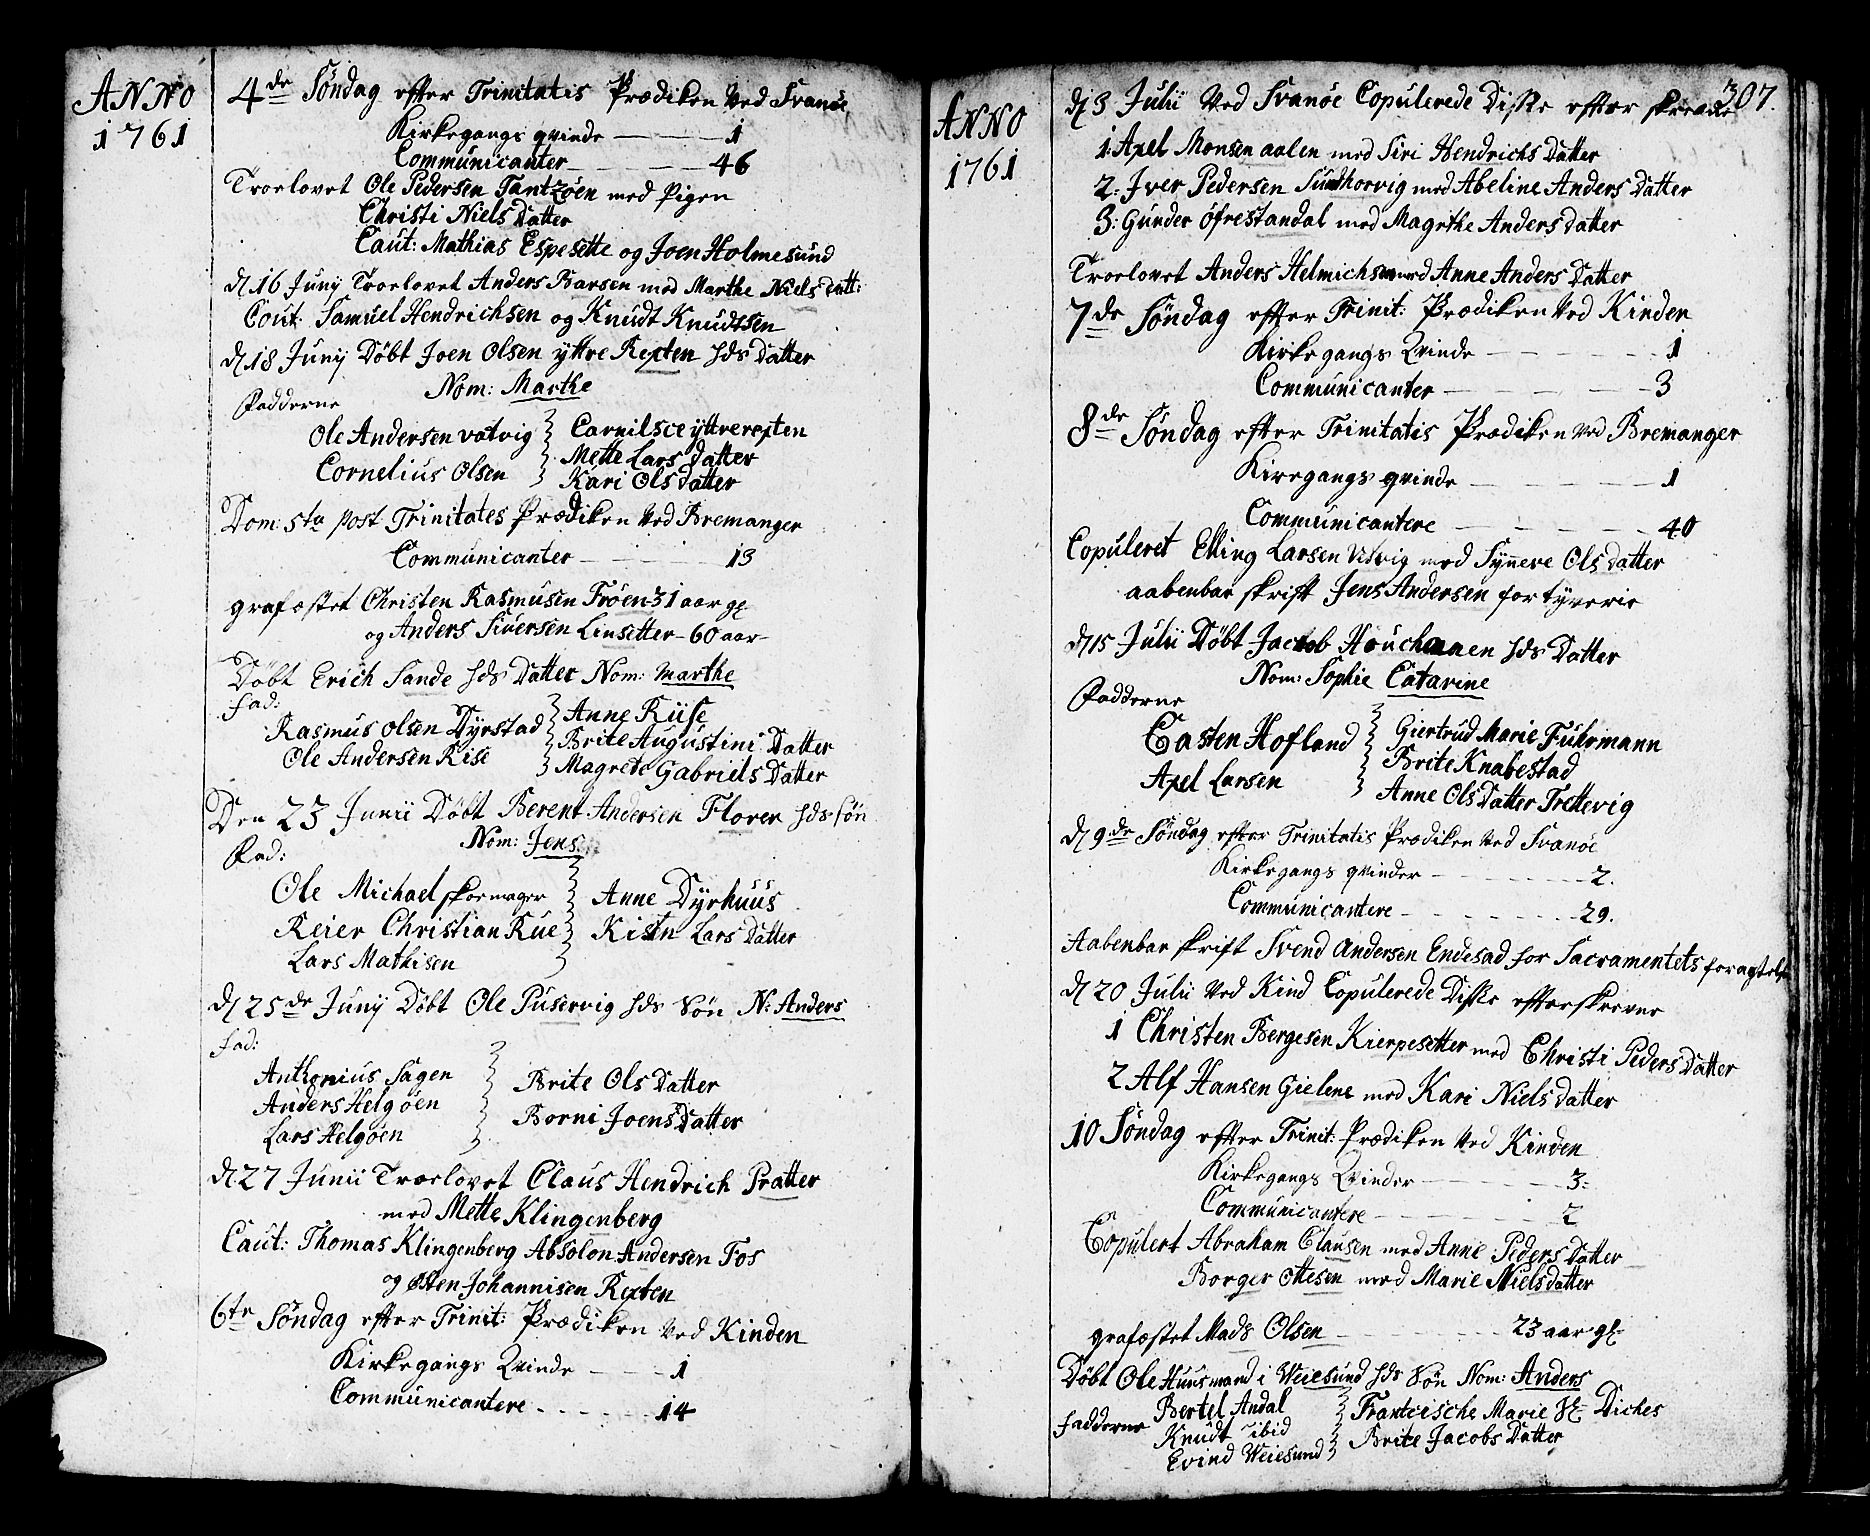 ANNO
1761
4de Söndag efter Trinitatis Prædiken Ved Svanöe
Kirkegangs qvinde 1
Communicanter 46
Troelovet Ole Pedersen Tantzöen med Pigen
Christi Niels Datter
Caut: Mathias Espesette og Joen Holmesund
d 16 Junÿ Troelovet Anders Barsen med Marthe Niels Datt:
Cout Samuel Hendrichsen og Knudt Knudtsen
d 18 Junÿ Döbt Joen Olsen ÿttre Rexten hds Datter
Nom: Marthe
Fadderne
Ole Andersen vatvig Carnilsce ÿttrerexten
Cornelius Olsen Mette Lars Datter
Kari Ols Datter
Dom: 5ta post Trinitates Prædiken Ved Bremanger
Communicanter 13
grafæstet Christen Rasmusen Fröen 31 aar gl
og Anders Siversen Linsetter 60 aar
Döbt Erich Sande hds Datter Nom: Marthe
Fad:
Rasmus Olsen Dÿrstad Anne Riise
Ole Andersen Rise Brite Augustini Datter
Magrete Gabriels Datter
Den 23 Junii Döbt Berent Andersen Florer hds sön
Nom: Jens
Fad:
Ole Michael skoemager Anne Dÿrhuus
Reier Christian Rue Kistn Lars Datter
Lars Mathisen
d 25de Junÿ Döbt Ole Puservig hds Sön N: Anders
Fad:
Anthonius Sagen Brite Ols Datter
Anders Helgöen Borni Joens Datter
Lars Helgöen
d 27 Junii Troelovet Claus Hendrich Pratter
med Mette Klingenberg
Caut: Thomas Klingenberg Absolon Andersen Fos
og Østen Johannisen Rexten
6te Söndag efter Trinit: Prædiken Ved Kinden
Kirkegangs Qvinde 1
Communicantere 14
ANNO
1761
307.
d 3 Julii Ved Svanöe Copulerede Diste efter skrevne
1: Axel Monsen aalen med Siri Hendrichs Datter
2: Iver Pedersen Sundhorvig med Abeline Anders Datter
3: Gunder Öfrestandal med Magrthe Anders Datter
Troelovet Anders Helmichsen med Anne Anders Datter
7de Söndag efter Trinit: Prædiken Ved Kinden
Kirkegangs Qvinde 1
Communicanter 3
8de Söndag efter Trinitatis Prædiken Ved Bremanger
Kiregangs qvinde 1
Communicantere 40
Copuleret Elling Larsen Vitsvig med Sÿnneve Ols Datter
aabenbar skrift Jens Andersen for tÿverie
d 15 Julii Döbt Jacob hds Datter
Nom: Sophie Catarine
Fadderne
Casten Hofland Giertrud Marie Fuhrmann
Axel Larsen Brite Knabestad
Anne Ols Datter Trettevig
d 9de Söndag efter Trinitatis Prædiken Ved Svanöe
Kirkegangs qvinder 2.
Communicantere 29.
Aabenbar skrift Svend Andersen Endesad for Sacramentets foragtelse
d 20 Julii Ved Kind Copulerede Diste efterskrevne
1 Christen Bergesen Kierpesetter med Christi Peders Datter
2 Alf Hansen Gielene med Kari Niels Datter
10 Söndag efter Trinit: Prædiken Ved Kinden
Kirkegangs Qvinder 3:
Communicantere 2
Copulert Abraham Clausen med Anne Peders Datter
Borger Ottesen med Marie Nielsdatter
grafæstet Mads Olsen 23 aar gl
Döbt Ole Huusmand i Weiesund hds Sön Nom: Anders
Fadderne Bertel Andal Frantcische Marie Sl Diches
Knudt ibid Brite Jacobs Datter
Evind Weiesund